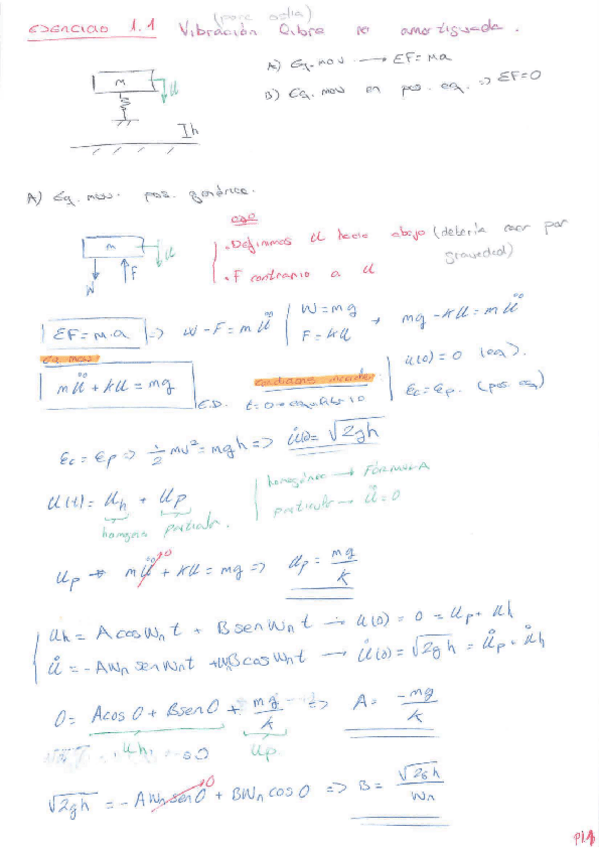 (para aolla)
EJERCICIO 1.1 Vibración libre no amortiguada.
A) Eq. mov. → EF=ma
B) Eq. mov en pos. eq. => EF=0
M
u
h
A) Eq. mov. pos. genérica.
M
u
W
F
· Definimos u hacia abajo (debería caer por gravedad)
· F contrario a u
EF=m.a => W-F=mü | W=mg F=ku → mg-ku=mü
Eq mov
mü+ku=mg
E.D. t=0→equilibrio
u(0)=0 (eq).
Ec=Ep. (pos. eq)
Ec=Ep => 1/2 mv²=mgh => u̇(0)=√2gh
u(t)= uh + up
homogénea particular.
homogénea → FÓRMULA
particular → ü=0
up → mü⁰+ku=mg => up = mg/k
uh= A cos Wn t + B sen Wn t → u(0)=0=up+uh
u̇=-AWn sen Wn t +WnB cos Wn t → u̇(0)=√2gh = u̇p+u̇h
0= A cos 0 + B sen 0 + mg/k => A= -mg/k
uh
up
√2gh = -AWn sen 0 + BWn cos 0 => B= √2gh/Wn
P1.1